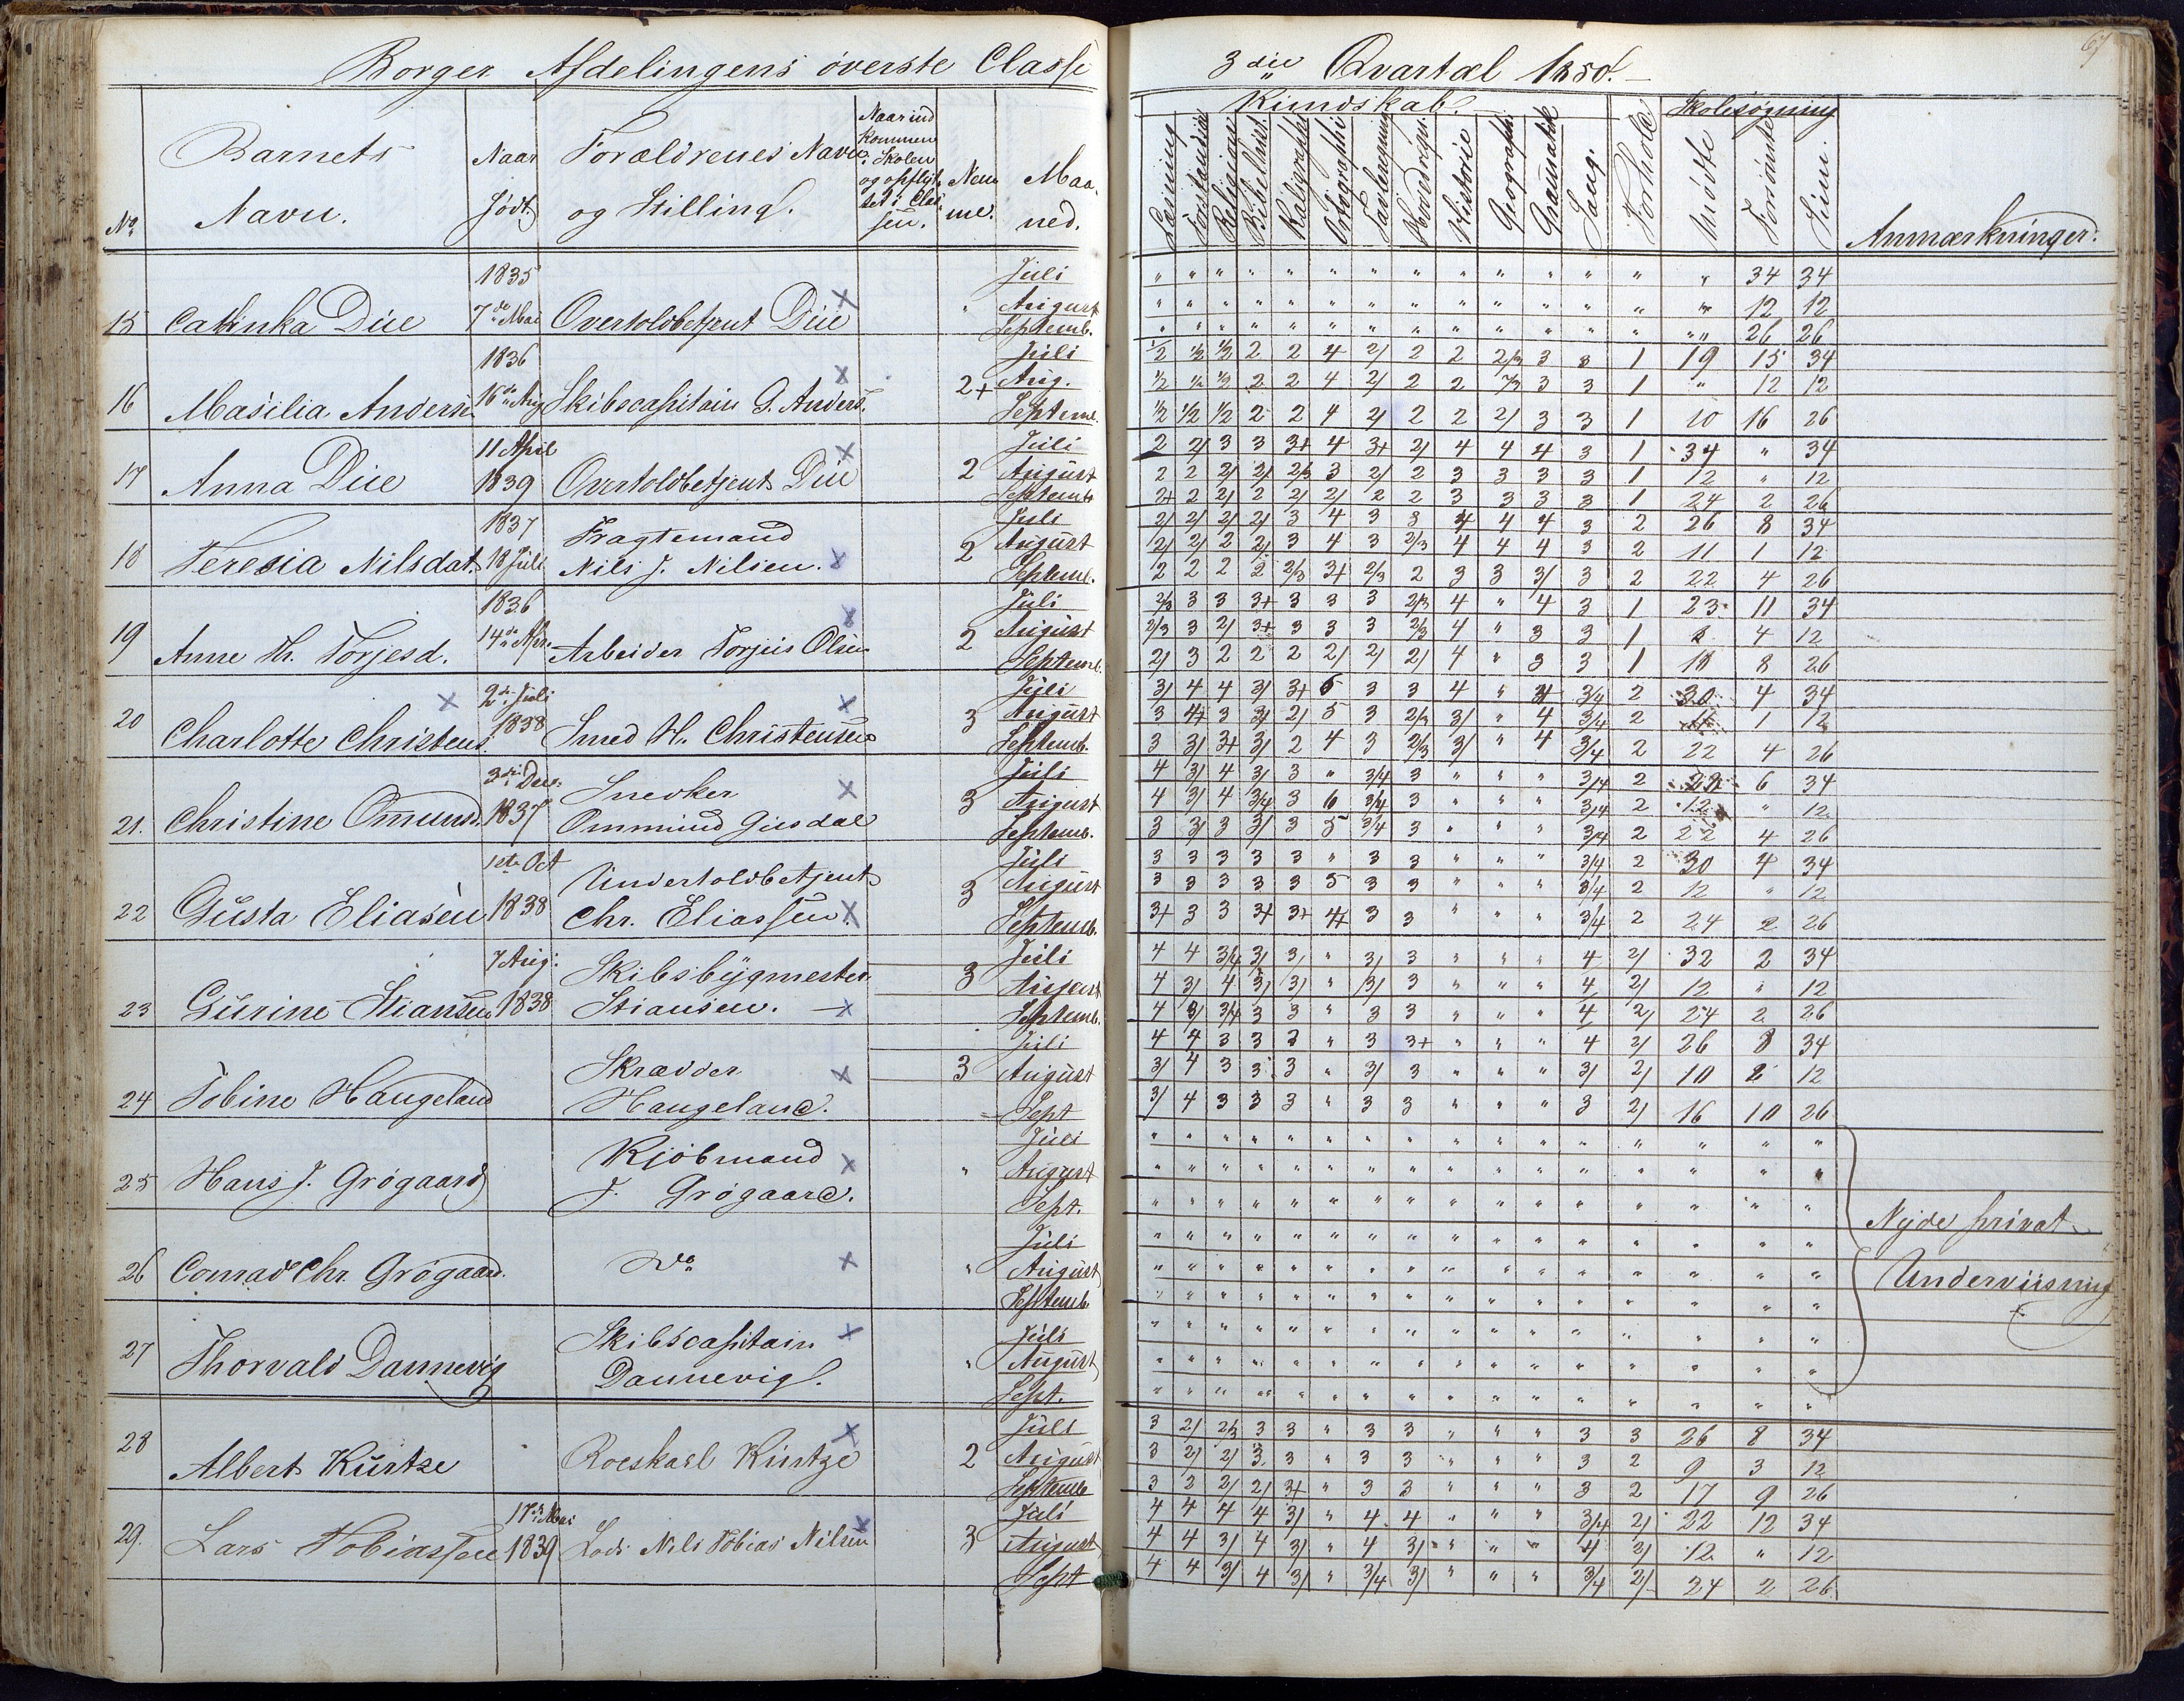 Borger Afdelingens överste Classe
3die Qvartal 1850.
67
No
Barnets Navn.
Naar födt.
Forældrenes Navn og Stilling.
Naar ind kommen i Skolen og opflyttet i Classen.
Nemme.
Maaned.
Kundskab.
Læsning
Forstandsø
Religion
Bibelhist.
Kaligraphi
Ortographi
Tavleregning
Hovedregn.
Historie
Geographi
Gramatik
Sang.
Forhold
Skolesøgning
Mødte
Forsömte
Sum.
Anmærkninger.
15 Catinka Due 1835 7de Mai Overtoldbetjent Due " Juli August Septemb.
" " " " " " " " " " " " " " 34 34
" " " " " " " " " " " " " " 12 12
" " " " " " " " " " " " " " 26 26
16 Masilia Anderse 1836 16de Aug Skibscapitain G. Anders. 2+ Juli Aug. Septeml.
1/2 1/2 1/2 2 2 4 2/ 2 2 2/3 3 3 1 19 15 34
1/2 1/2 1/2 2 2 4 2/ 2 2 2/3 3 3 1 " 12 12
1/2 1/2 1/2 2 2 4 2/ 2 2 2/ 3 3 1 10 16 26
17 Anna Due 11 April 1839 Overtoldbetjent Due 2 Juli August Septemb
2 2/ 3 3 3+ 4 3+ 2/ 4 4 4 3 1 34 " 34
2 2 2/ 2/ 2/3 3 2/ 2 3 3 3 3 1 12 " 12
2+ 2 2/ 2 2/ 2/ 2 2 3 3 3 3 1 24 2 26
18 Teresia Nilsdat. 1837 18 Juli Fragtemand Nils J. Nilsen. 2 Juli August Septeml.
2/ 2/ 2/ 2/ 3 4 3 3 4 4 4 3 2 26 8 34
2/ 2/ 2 2/ 3 4 3 2/3 4 4 4 3 2 11 1 12
2 2 2 2 2/3 3+ 2/3 2 3 3 3/ 3 2 22 4 26
19 Anne Th. Torjesd. 1836 14de Apr. Arbeider Torjus Olsen 2 Juli August Septeml.
2/3 3 3 3+ 3 3 3 2/3 4 " 4 3 1 23 11 34
2/3 3 2/ 3+ 3 3 3 2/3 4 " 3 3 1 8 4 12
2/ 3 2 2 2 2/ 2/ 2/ 4 " 3 3 1 18 8 26
20 Charlotte Christens. 2de Juli 1838 Smed H. Christensen 3 Juli August Septemb.
3/ 4 4 3/ 3+ 5 3 3 4 " 4 3/4 2 30 4 34
3 4+ 3 3/ 2/ 5 3 2/3 3/ " 4 3/4 2 11 1 12
3 3/ 3+ 3/ 2 4 3 2/3 3/ " 4 3/4 2 22 4 26
21. Christine Omunds. 3die Dec. 1837 Snedker Ommund Gusdal 3 Juli August Septemb.
4 3/ 4 3/ 3 " 3/4 3 " " " 3/4 2 28 6 34
4 3/ 4 3/4 3 6 3/4 3 " " " 3/4 2 12 " 12
3 3/ 3 3/ 3 5 3/4 3 " " " 3/4 2 22 4 26
22 Gusta Eliasen 1ste Oct 1838 Undertoldbetjent Chr. Eliassen. 3 Juli August Septemb.
3 3 3 3 3 " 3 3 " " " 3/4 2 30 4 34
3 3 3 3 3 5 3 3 " " " 3/4 2 12 " 12
3+ 3 3 3+ 3+ 4+ 3 3 " " " 3/4 2 24 2 26
23 Gurine Stiansen 7 Aug: 1838 Skibsbygmester Stiansen. 3 Juli August Septemb.
4 4 3/4 3/ 3/ " 3/ 3 " " " 4 2/ 32 2 34
4 3/ 4 3/ 3/ " 3/ 3 " " " 4 2/ 12 " 12
4 3/ 3/4 3 3 " 3 3 " " " 4 2/ 24 2 26
24 Tobine Haugeland Skrædder Haugeland. 3 Juli August Sept
4 4 3 3 3 " 3 3+ " " " 4 2/ 26 8 34
3/ 4 3 3 3 " 3/ 3 " " " 3/ 2/ 10 2 12
3/ 4 3 3 3 " 3 3 " " " 3 2/ 16 10 26
25 Hans J. Grögaard Kjöbmand J. Grögaard. " Juli August Sept.
26 Conrad Chr. Grögaard. do " Juli August Septemb.
27 Thorvald Dannevig Skibscapitain Dannevig. " Juli August Sept.
Nyde privat
Underviisning
28 Albert Kürtze Roeskarl Kürtze 2 Juli August Septemb
3 2/ 2/3 3 3 " 3 3 " " " 3 3 26 8 34
3 2/ 2/ 3 3 " 3 3 " " " 3 2 9 3 12
3 2 2/ 2/ 3+ " 3 3 " " " 3 2 17 9 26
29. Lars Tobiassen 17de Mai 1839 Lods Nils Tobias Nilsen 3 Juli August Sept
4 4 4 4 3/ " 4 4 " " " 3/4 2/ 22 12 34
4 4 3/ 4 3/ " 4 3/ " " " 4 2/ 12 " 12
4 4 3/ 4 3/ " 3/4 3/ " " " 3/4 2/ 24 2 26